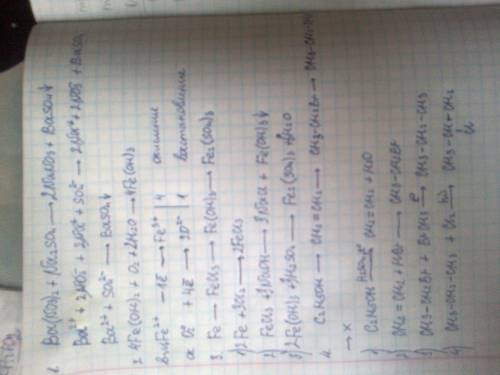 1. Ba(NO3)2 + Na2SO4 → 2NaNO3 + BaSO4↓
Ba2+ + 2NO3- + 2Na+ + SO4 2- → 2Na+ + 2NO3- + BaSO4
Ba2+ + SO4 2- → BaSO4↓
2. 4Fe(OH)2 + O2 + 2H2O → 4Fe(OH)3
Fe2+ -1ē → Fe3+ | 4
O2 + 4ē → 2O2- | 1
3. Fe → FeCl3 → Fe(OH)3 → Fe2(SO4)3
1) 2Fe + 3Cl2 → 2FeCl3
2) FeCl3 + 3NaOH → 3NaCl + Fe(OH)3↓
3) 2Fe(OH)3 + 3H2SO4 → Fe2(SO4)3 + 6H2O
4. C2H5OH → CH2=CH2 → CH3-CH2Br → CH3-CH2-CH3
→ X
1) C2H5OH → CH2=CH2 + H2O
2) CH2=CH2 + HBr → CH3-CH2Br
3) CH3-CH2Br + BrCH3 → CH3-CH2-CH3
4) CH3-CH2-CH3 + Cl2 → CH3-CH-CH3
Cl